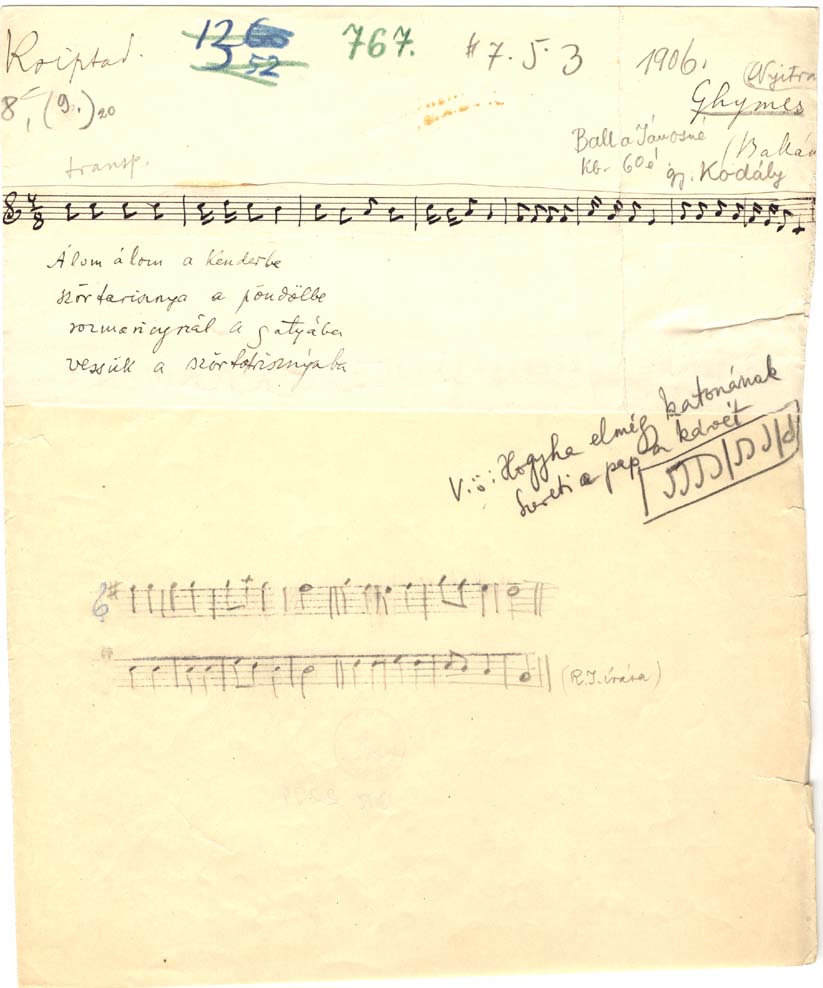 Kriptad. 12 767. #7. 5. 3 1906. Nyitra
3 52
8, (9.) 20 Ghymes
Balla Jánosné (Bakán
kb. 60 é gy. Kodály
transp.
4/8
Álom álom a kenderbe
szőrtarisnya a pöndölbe
rozmaringszál a gatyába
vessük a szőrtarisznyába
V.ö: Hogyha elmég katonának
Sereti a pap a kávét
(R.I. írása)